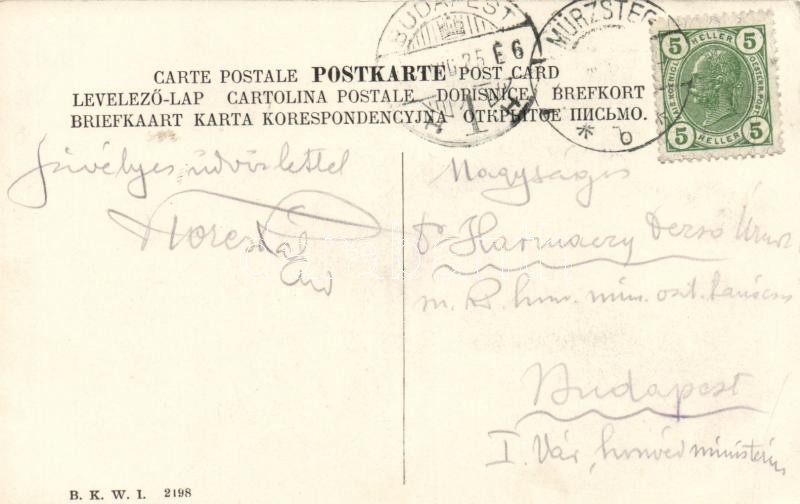 BUDAPEST
25 E6
1
MÜRZSTEG
* b *
5 HELLER 5
5 HELLER 5
CARTE POSTALE POSTKARTE POST CARD
LEVELEZŐ-LAP CARTOLINA POSTALE DOPISNICE BREFKORT
BRIEFKAART KARTA KORESPONDENCYJNA ОТКРЫТОЕ ПИСЬМО.
Szivélyes üdvözlettel
Nagyságos
Dr Harmaczy Dezső Urnak
m. kir. hon. min. oszt. tanácsos
Budapest
I Vár, honvédminisztérium
B. K. W. I. 2198